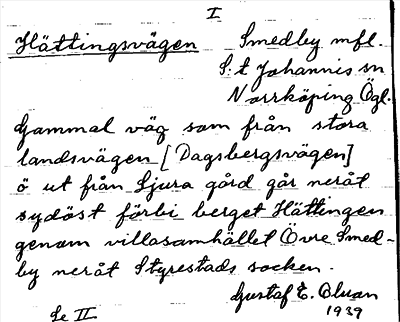 I
Hättingsvägen Smedby mfl.
S:t Johannis sn
Norrköping Ögl.
Gammal väg som från stora
landsvägen [Dagsbergsvägen]
ö ut från Ljura gård går neråt
sydöst förbi berget Hättingen
genom villasamhället Övre Smed-
by neråt Styrestads socken.
Gustaf E. Olsson
Se II 1939